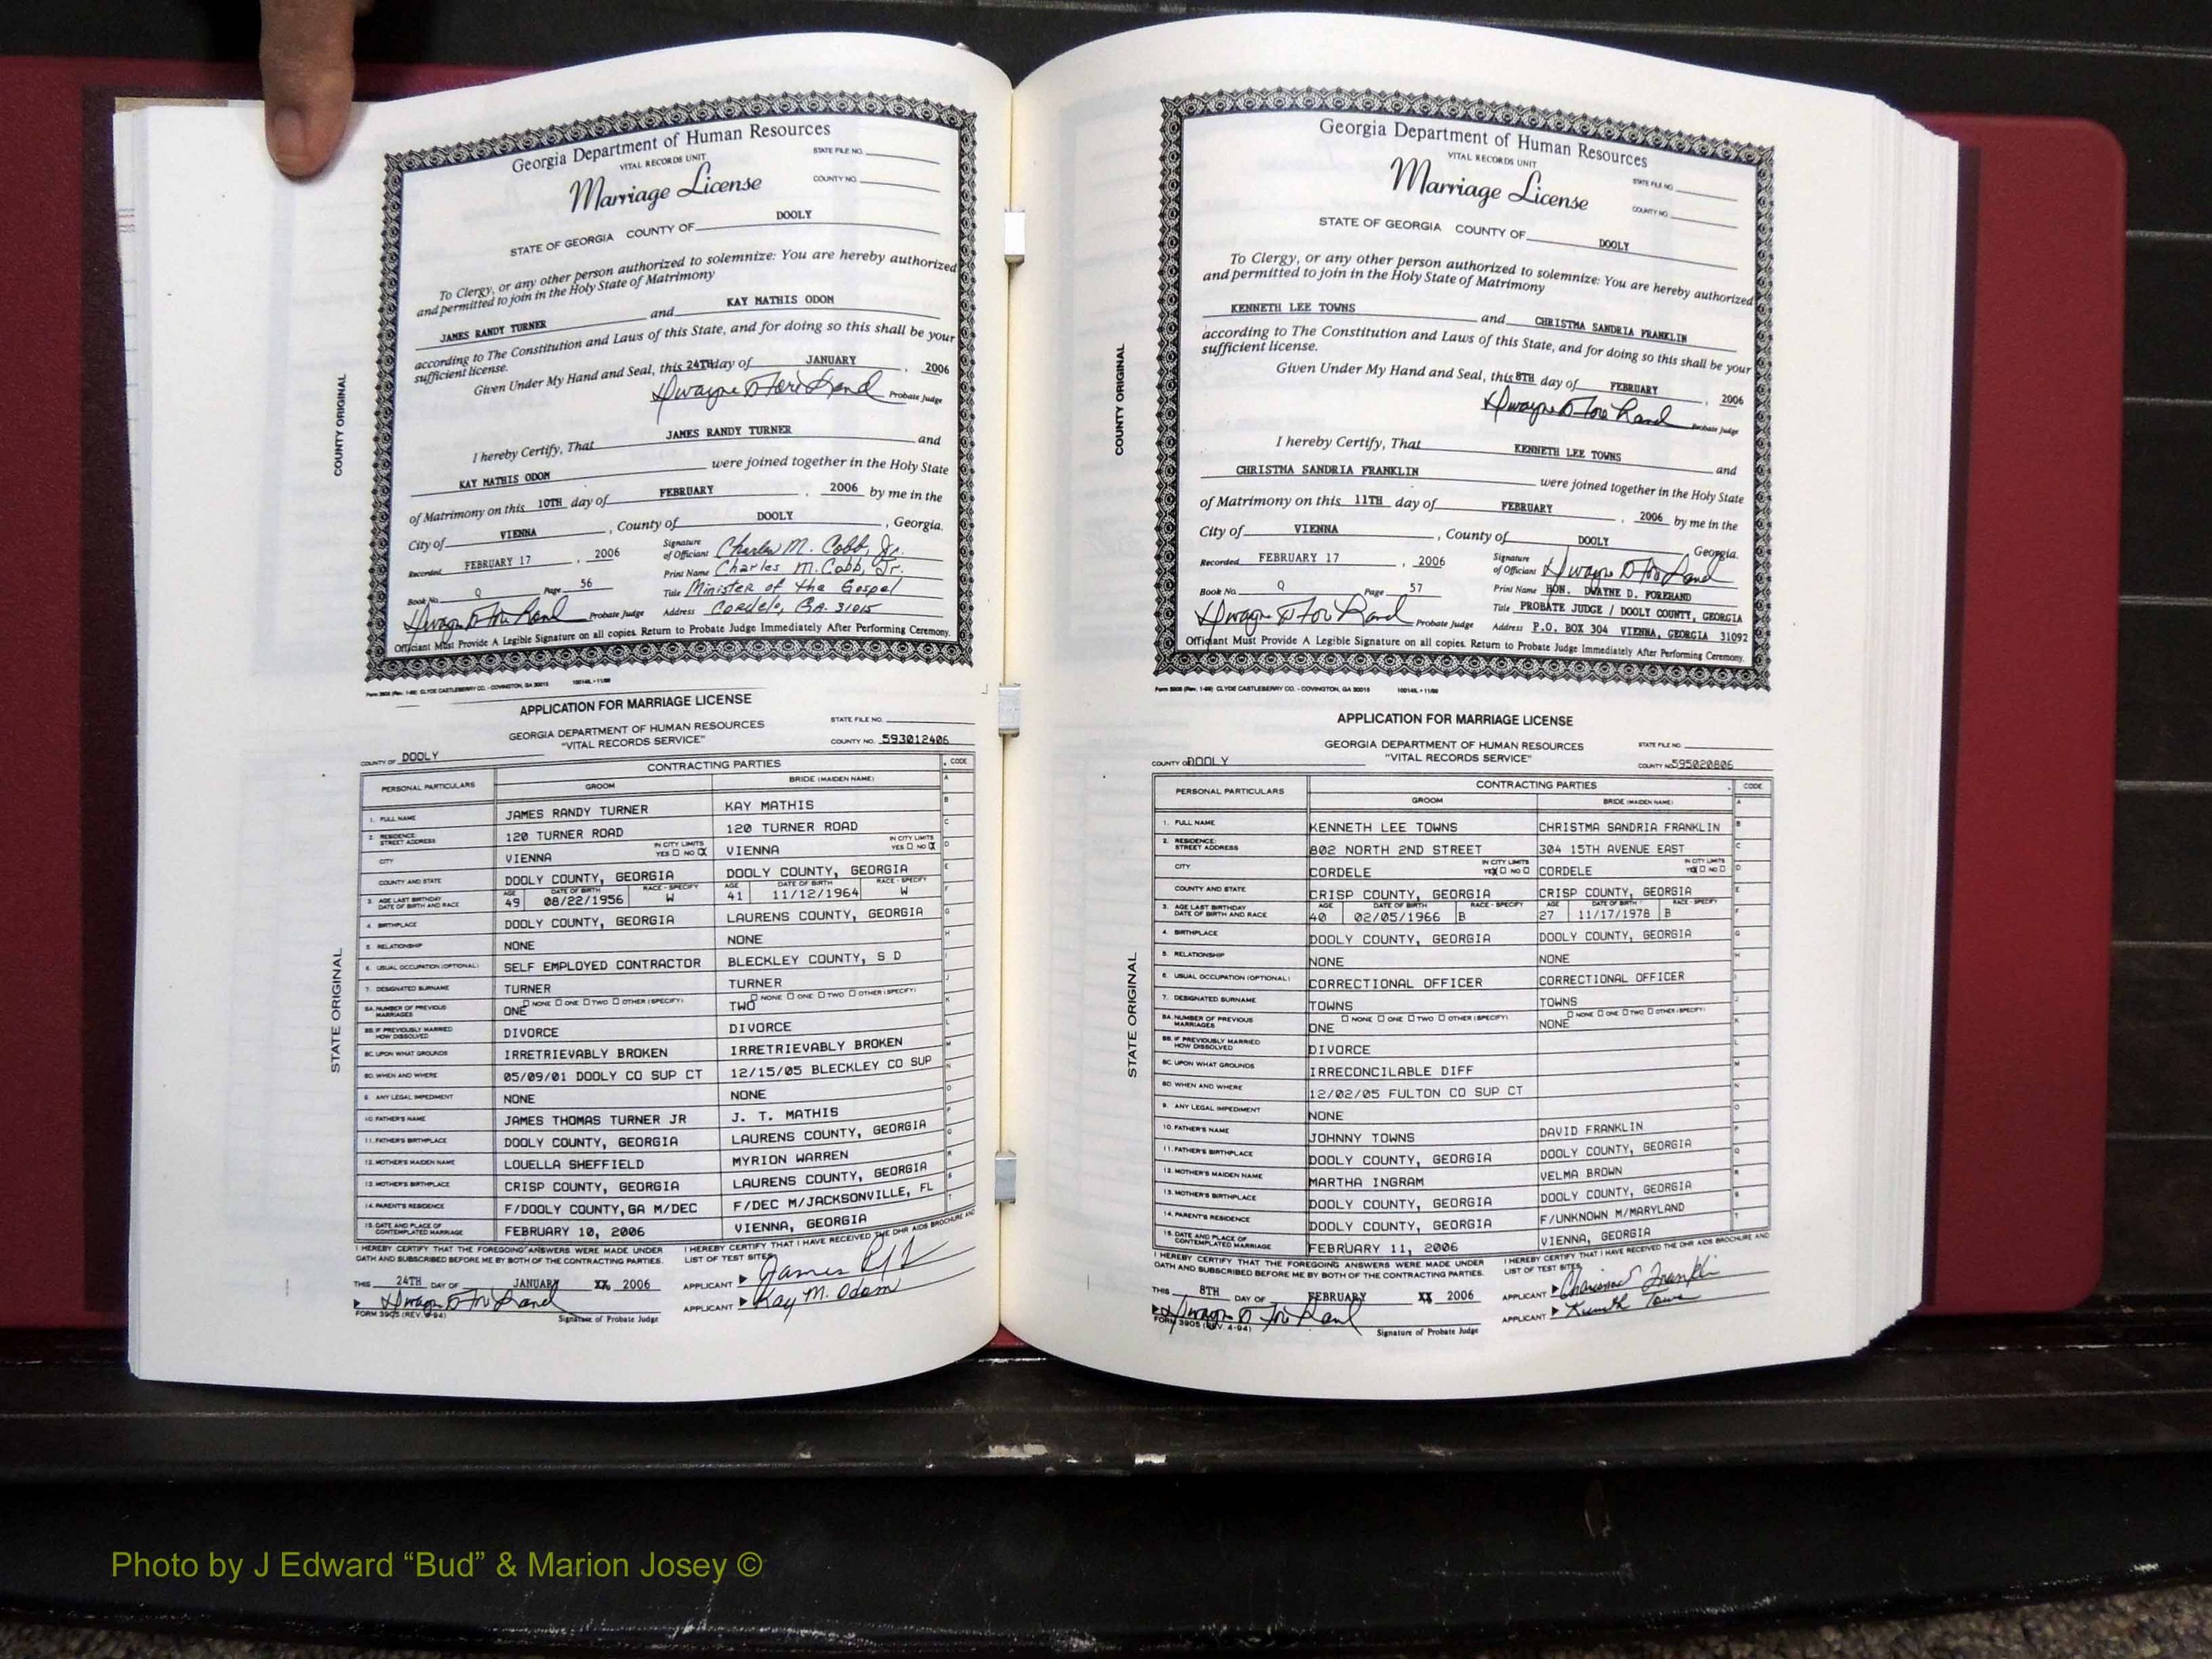 COUNTY ORIGINAL
Georgia Department of Human Resources
VITAL RECORDS UNIT
STATE FILE NO.
Marriage License
COUNTY NO.
STATE OF GEORGIA COUNTY OF DOOLY
To Clergy, or any other person authorized to solemnize: You are hereby authorized
and permitted to join in the Holy State of Matrimony
JAMES RANDY TURNER and KAY MATHIS ODOM
according to The Constitution and Laws of this State, and for doing so this shall be your
sufficient license.
Given Under My Hand and Seal, this 24TH day of JANUARY, 2006
Probate Judge
I hereby Certify, That JAMES RANDY TURNER and
KAY MATHIS ODOM were joined together in the Holy State
of Matrimony on this 10TH day of FEBRUARY, 2006 by me in the
City of VIENNA, County of DOOLY, Georgia.
Recorded FEBRUARY 17, 2006 Signature of Officiant Charles M. Cobb, Jr.
Print Name Charles M. Cobb, Jr.
Book No. Q Page 56 Title Minister of the Gospel
Probate Judge Address Cordele, GA. 31015
Officiant Must Provide A Legible Signature on all copies. Return to Probate Judge Immediately After Performing Ceremony.
CLYDE CASTLEBERRY CO. - COVINGTON, GA 30015
APPLICATION FOR MARRIAGE LICENSE
GEORGIA DEPARTMENT OF HUMAN RESOURCES
"VITAL RECORDS SERVICE"
STATE FILE NO.
COUNTY NO. 593012406
COUNTY OF DOOLY
STATE ORIGINAL
PERSONAL PARTICULARS CONTRACTING PARTIES CODE
GROOM BRIDE (MAIDEN NAME)
1. FULL NAME JAMES RANDY TURNER KAY MATHIS
2. RESIDENCE: STREET ADDRESS 120 TURNER ROAD 120 TURNER ROAD
CITY VIENNA IN CITY LIMITS YES NO X VIENNA IN CITY LIMITS YES NO X
COUNTY AND STATE DOOLY COUNTY, GEORGIA DOOLY COUNTY, GEORGIA
3. AGE LAST BIRTHDAY DATE OF BIRTH AND RACE AGE 49 DATE OF BIRTH 08/22/1956 RACE - SPECIFY W AGE 41 DATE OF BIRTH 11/12/1964 RACE - SPECIFY W
4. BIRTHPLACE DOOLY COUNTY, GEORGIA LAURENS COUNTY, GEORGIA
5. RELATIONSHIP NONE NONE
6. USUAL OCCUPATION (OPTIONAL) SELF EMPLOYED CONTRACTOR BLECKLEY COUNTY, S D
7. DESIGNATED SURNAME TURNER TURNER
8A. NUMBER OF PREVIOUS MARRIAGES ONE NONE ONE TWO OTHER (SPECIFY) TWO NONE ONE TWO OTHER (SPECIFY)
8B. IF PREVIOUSLY MARRIED HOW DISSOLVED DIVORCE DIVORCE
8C. UPON WHAT GROUNDS IRRETRIEVABLY BROKEN IRRETRIEVABLY BROKEN
8D. WHEN AND WHERE 05/09/01 DOOLY CO SUP CT 12/15/05 BLECKLEY CO SUP
9. ANY LEGAL IMPEDIMENT NONE NONE
10. FATHER'S NAME JAMES THOMAS TURNER JR J. T. MATHIS
11. FATHER'S BIRTHPLACE DOOLY COUNTY, GEORGIA LAURENS COUNTY, GEORGIA
12. MOTHER'S MAIDEN NAME LOUELLA SHEFFIELD MYRION WARREN
13. MOTHER'S BIRTHPLACE CRISP COUNTY, GEORGIA LAURENS COUNTY, GEORGIA
14. PARENT'S RESIDENCE F/DOOLY COUNTY,GA M/DEC F/DEC M/JACKSONVILLE, FL
15. DATE AND PLACE OF CONTEMPLATED MARRIAGE FEBRUARY 10, 2006 VIENNA, GEORGIA
I HEREBY CERTIFY THAT THE FOREGOING ANSWERS WERE MADE UNDER I HEREBY CERTIFY THAT I HAVE RECEIVED THE DHR AIDS BROCHURE AND
OATH AND SUBSCRIBED BEFORE ME BY BOTH OF THE CONTRACTING PARTIES. LIST OF TEST SITES
THIS 24TH DAY OF JANUARY XX 2006 APPLICANT James
APPLICANT Kay M. Odom
FORM 3905 (REV. 4-94) Signature of Probate Judge
COUNTY ORIGINAL
Georgia Department of Human Resources
VITAL RECORDS UNIT
STATE FILE NO.
Marriage License
COUNTY NO.
STATE OF GEORGIA COUNTY OF DOOLY
To Clergy, or any other person authorized to solemnize: You are hereby authorized
and permitted to join in the Holy State of Matrimony
KENNETH LEE TOWNS and CHRISTMA SANDRIA FRANKLIN
according to The Constitution and Laws of this State, and for doing so this shall be your
sufficient license.
Given Under My Hand and Seal, this 8TH day of FEBRUARY, 2006
Probate Judge
I hereby Certify, That KENNETH LEE TOWNS and
CHRISTMA SANDRIA FRANKLIN were joined together in the Holy State
of Matrimony on this 11TH day of FEBRUARY, 2006 by me in the
City of VIENNA, County of DOOLY Georgia.
Recorded FEBRUARY 17, 2006 Signature of Officiant
Book No. Q Page 57 Print Name HON. DWAYNE D. FOREHAND
Title PROBATE JUDGE / DOOLY COUNTY, GEORGIA
Probate Judge Address P.O. BOX 304 VIENNA, GEORGIA 31092
Officiant Must Provide A Legible Signature on all copies. Return to Probate Judge Immediately After Performing Ceremony.
CLYDE CASTLEBERRY CO. - COVINGTON, GA 30015
APPLICATION FOR MARRIAGE LICENSE
GEORGIA DEPARTMENT OF HUMAN RESOURCES
"VITAL RECORDS SERVICE"
STATE FILE NO.
COUNTY NO. 595020806
COUNTY OF DOOLY
STATE ORIGINAL
PERSONAL PARTICULARS CONTRACTING PARTIES CODE
GROOM BRIDE (MAIDEN NAME)
1. FULL NAME KENNETH LEE TOWNS CHRISTMA SANDRIA FRANKLIN
2. RESIDENCE: STREET ADDRESS 802 NORTH 2ND STREET 304 15TH AVENUE EAST
CITY CORDELE IN CITY LIMITS YES X NO CORDELE IN CITY LIMITS YES X NO
COUNTY AND STATE CRISP COUNTY, GEORGIA CRISP COUNTY, GEORGIA
3. AGE LAST BIRTHDAY DATE OF BIRTH AND RACE AGE 40 DATE OF BIRTH 02/05/1966 RACE - SPECIFY B AGE 27 DATE OF BIRTH 11/17/1978 RACE - SPECIFY B
4. BIRTHPLACE DOOLY COUNTY, GEORGIA DOOLY COUNTY, GEORGIA
5. RELATIONSHIP NONE NONE
6. USUAL OCCUPATION (OPTIONAL) CORRECTIONAL OFFICER CORRECTIONAL OFFICER
7. DESIGNATED SURNAME TOWNS TOWNS
8A. NUMBER OF PREVIOUS MARRIAGES ONE NONE ONE TWO OTHER (SPECIFY) NONE NONE ONE TWO OTHER (SPECIFY)
8B. IF PREVIOUSLY MARRIED HOW DISSOLVED DIVORCE
8C. UPON WHAT GROUNDS IRRECONCILABLE DIFF
8D. WHEN AND WHERE 12/02/05 FULTON CO SUP CT
9. ANY LEGAL IMPEDIMENT NONE
10. FATHER'S NAME JOHNNY TOWNS DAVID FRANKLIN
11. FATHER'S BIRTHPLACE DOOLY COUNTY, GEORGIA DOOLY COUNTY, GEORGIA
12. MOTHER'S MAIDEN NAME MARTHA INGRAM VELMA BROWN
13. MOTHER'S BIRTHPLACE DOOLY COUNTY, GEORGIA DOOLY COUNTY, GEORGIA
14. PARENT'S RESIDENCE DOOLY COUNTY, GEORGIA F/UNKNOWN M/MARYLAND
15. DATE AND PLACE OF CONTEMPLATED MARRIAGE FEBRUARY 11, 2006 VIENNA, GEORGIA
I HEREBY CERTIFY THAT THE FOREGOING ANSWERS WERE MADE UNDER I HEREBY CERTIFY THAT I HAVE RECEIVED THE DHR AIDS BROCHURE AND
OATH AND SUBSCRIBED BEFORE ME BY BOTH OF THE CONTRACTING PARTIES. LIST OF TEST SITES
THIS 8TH DAY OF FEBRUARY XX 2006 APPLICANT
APPLICANT
FORM 3905 (REV. 4-94) Signature of Probate Judge
Photo by J Edward “Bud” & Marion Josey ©